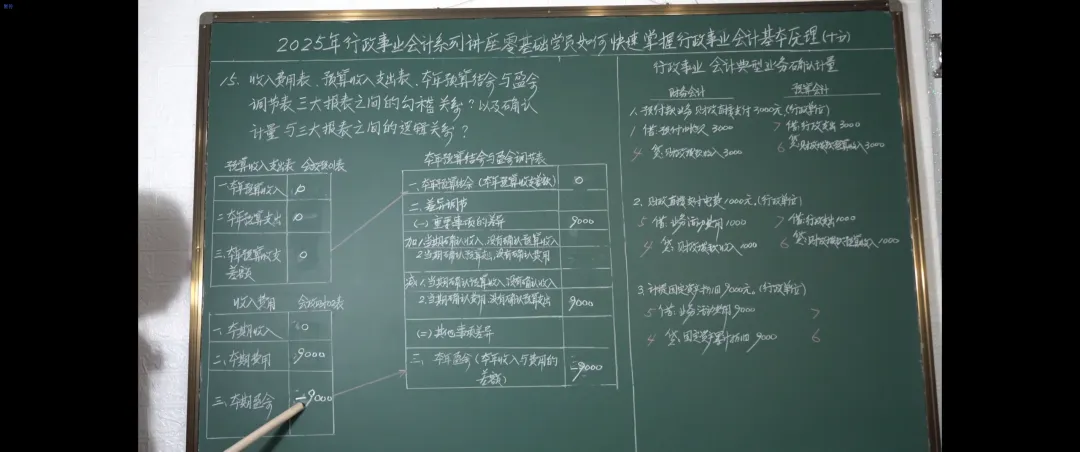 2025年行政事业会计系列讲座零基础学员如何快速掌握行政事业会计基本原理(十六)
15. 收入费用表、预算收入支出表、本年预算结余与盈余
调节表三大报表之间的勾稽关系?以及确认
计量与三大报表之间的逻辑关系?
预算收入支出表 会政预01表
一.本年预算收入 0
二.本年预算支出 0
三.本年预算收支
差额 0
收入费用
一、本期收入 0
二.本期费用 9000
三.本期盈余 -9000
本年预算结余与盈余调节表
一、本年预算结余(本年预算收支差额) 0
二.差异调节
(一)重要事项的差异 9000
加1.当期确认收入、没有确认预算收入
2.当期确认预算支出、没有确认费用
减1.当期确认预算收入、没有确认收入
2.当期确认费用、没有确认预算支出 9000
(二)其他事项差异
三、本年盈余(本年收入与费用的
差额) -9000
行政事业会计典型业务确认计量
财务会计 预算会计
1.预付款业务 财政直接支付3000元.(行政单位)
1 借:预付账款 3000 7 借:行政支出 3000
4 贷:财政拨款收入 3000 6 贷:财政拨款预算收入 3000
2.财政直接支付电费1000元.(行政单位)
5 借:业务活动费用 1000 7 借:行政支出 1000
4 贷:财政拨款收入 1000 6 贷:财政拨款预算收入 1000
3.计提固定资产折旧9000元。(行政单位)
5 借:业务活动费用 9000 7
4 贷:固定资产累计折旧 9000 6